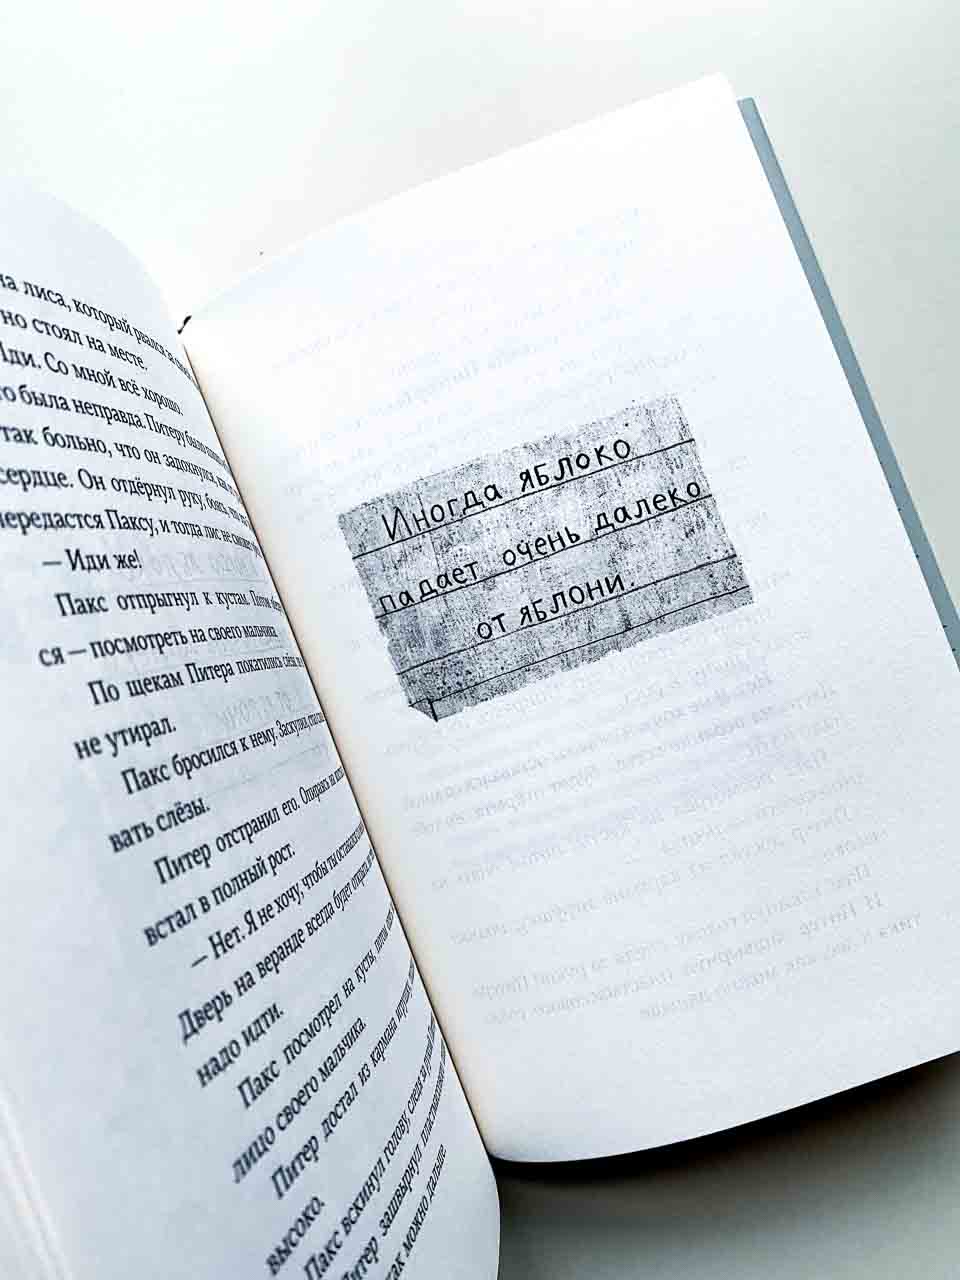 на лиса, который рвался за
но стоял на месте.
Иди. Со мной всё хорошо.
то была неправда. Питеру было
так больно, что он задохнулся,
сердце. Он отдёрнул руку, боясь, что
передастся Паксу, и тогда лис не сможет
— Иди же!
Пакс отпрыгнул к кустам. Потом
ся — посмотреть на своего мальчика.
По щекам Питера покатились слёзы,
не утирал.
Пакс бросился к нему. Заскулил,
вать слёзы.
Питер отстранил его. Опираясь на
встал в полный рост.
— Нет. Я не хочу, чтобы ты оставался
Дверь на веранде всегда будет открыта,
надо идти.
Пакс посмотрел на кусты, потом
лицо своего мальчика.
Питер достал из кармана игрушку,
высоко.
Пакс вскинул голову, следя за рукой
Питер зашвырнул
как можно дальше.
Иногда яблоко
падает очень далеко
от яблони.